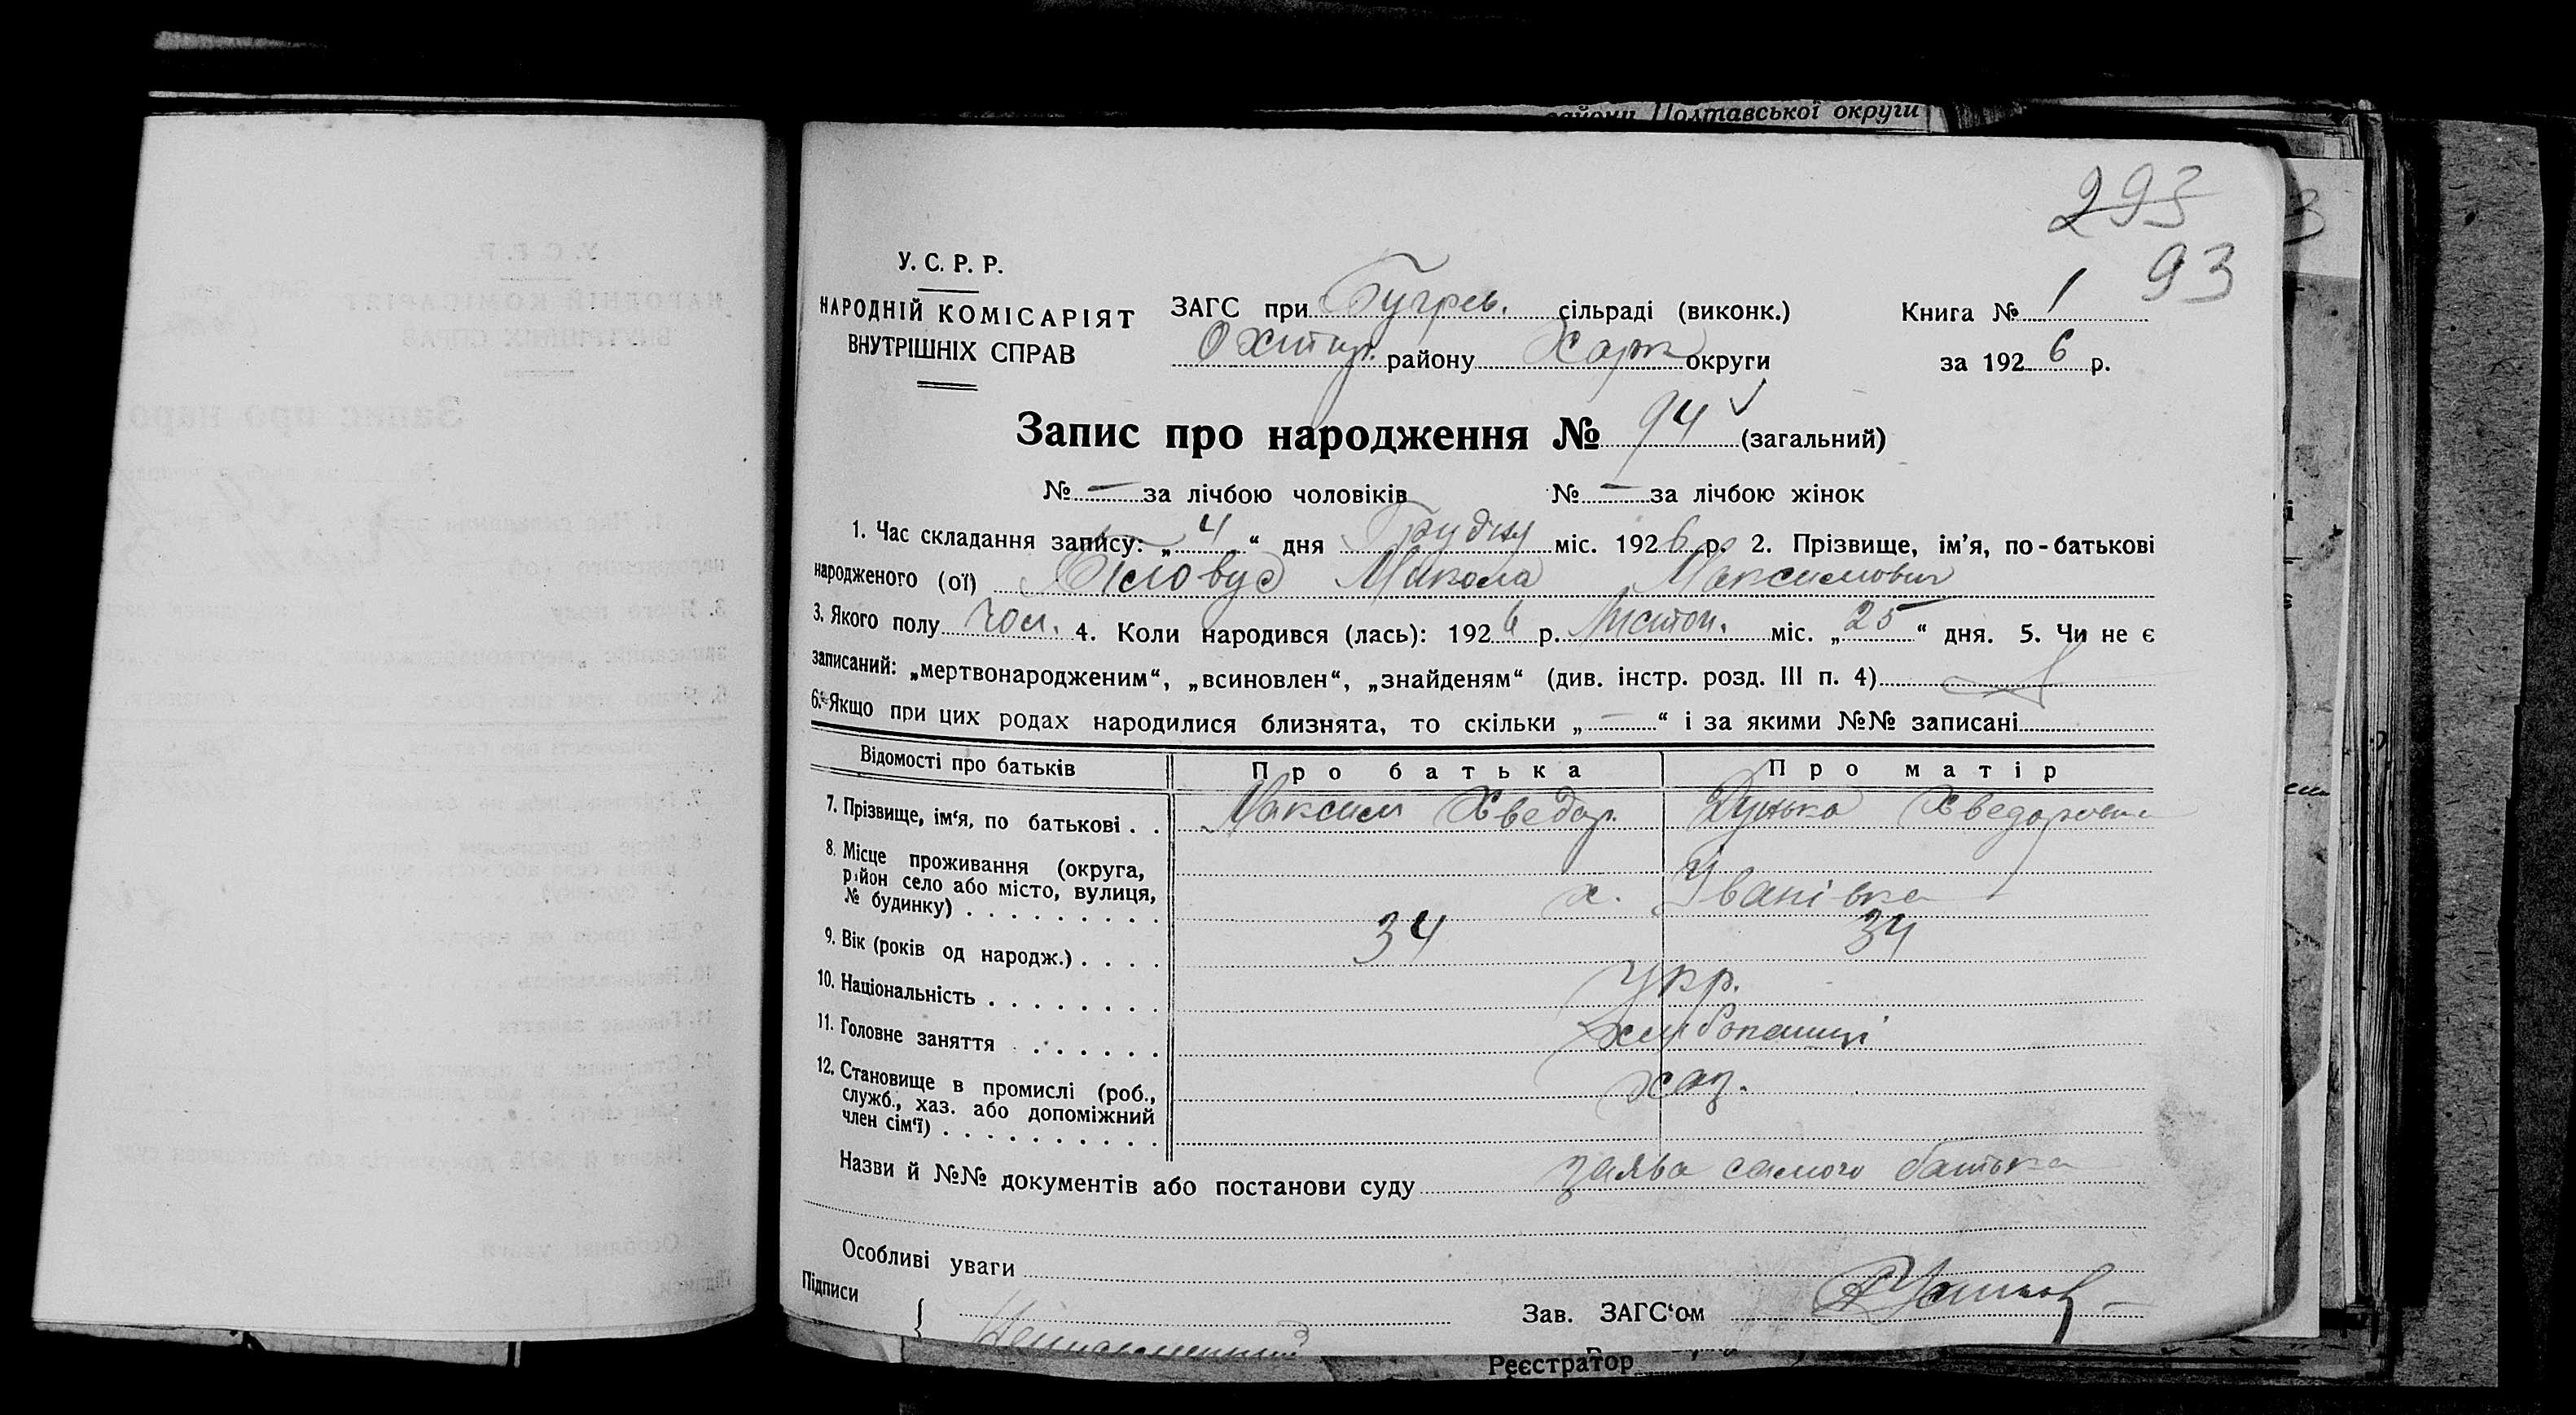 райони Полтавської округи
293
93
У. С. Р. Р.
НАРОДНІЙ КОМІСАРІЯТ
ВНУТРІШНІХ СПРАВ
ЗАГС при Бугрев. сільраді (виконк.)
Охтир. району Харк округи
Книга № 1
за 1926 р.
Запис про народження № 94 (загальний)
№ — за лічбою чоловіків № — за лічбою жінок
1. Час складання запису: „4“ дня Грудня міс. 1926 р. 2. Прізвище, ім’я, по-батькові
народженого (ої) Біловус Микола Максимович
3. Якого полу чол. 4. Коли народився (лась): 1926 р. Листоп. міс. „25“ дня. 5. Чи не є
записаний: „мертвонародженим“, „всиновлен“, „знайденям“ (див. інстр. розд. III п. 4)
6. Якщо при цих родах народилися близнята, то скільки „—“ і за якими №№ записані
Відомості про батьків Про батька Про матір
7. Прізвище, ім‘я, по батькові . . Максим Хведор. Дунька Хведоровна
8. Місце проживання (округа,
район село або місто, вулиця,
№ будинку) . . . . . . . . . х. Іванівка
9. Вік (років од народж.) . . . . 34 34
10. Національність . . . . . . . . Укр.
11. Головне заняття . . . . . . . хлібопашці
12. Становище в промислі (роб.,
служб., хаз. або допоміжний
член сім‘ї) . . . . . . . . . . . хаз.
Назви й №№ документів або постанови суду заява самого батька
Особливі уваги
Підписи
Зав. ЗАГС‘ом
Неписьменний
Реєстратор